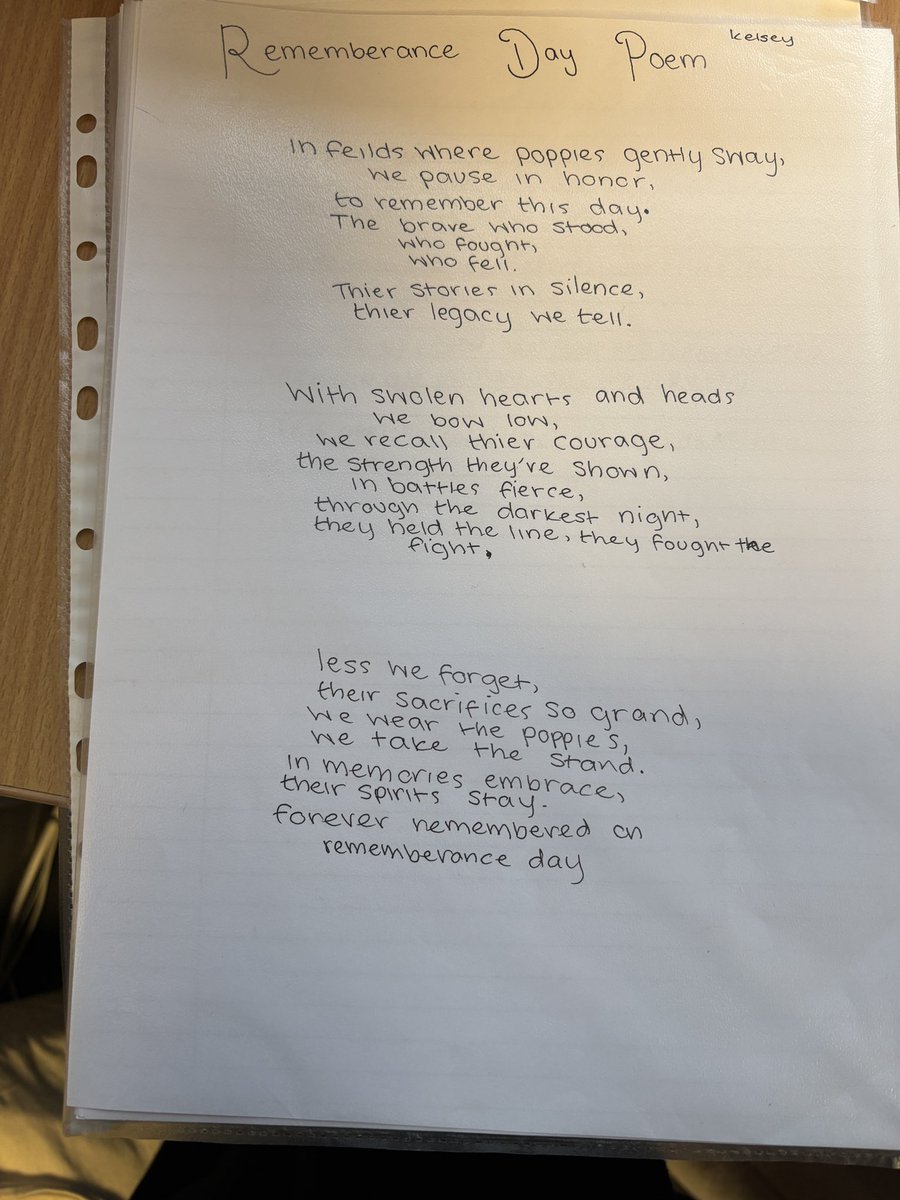 Rememberance Day Poem
kelsey
In feilds where poppies gently sway,
we pause in honor,
to remember this day.
The brave who stood,
who fought,
who fell.
Thier stories in silence,
thier legacy we tell.
With swolen hearts and heads
we bow low,
we recall thier courage,
the strength they've shown,
in battles fierce,
through the darkest night,
they held the line, they fought the
fight.
less we forget,
their sacrifices so grand,
we wear the poppies,
we take the stand.
In memories embrace,
their spirits stay.
forever remembered on
rememberance day